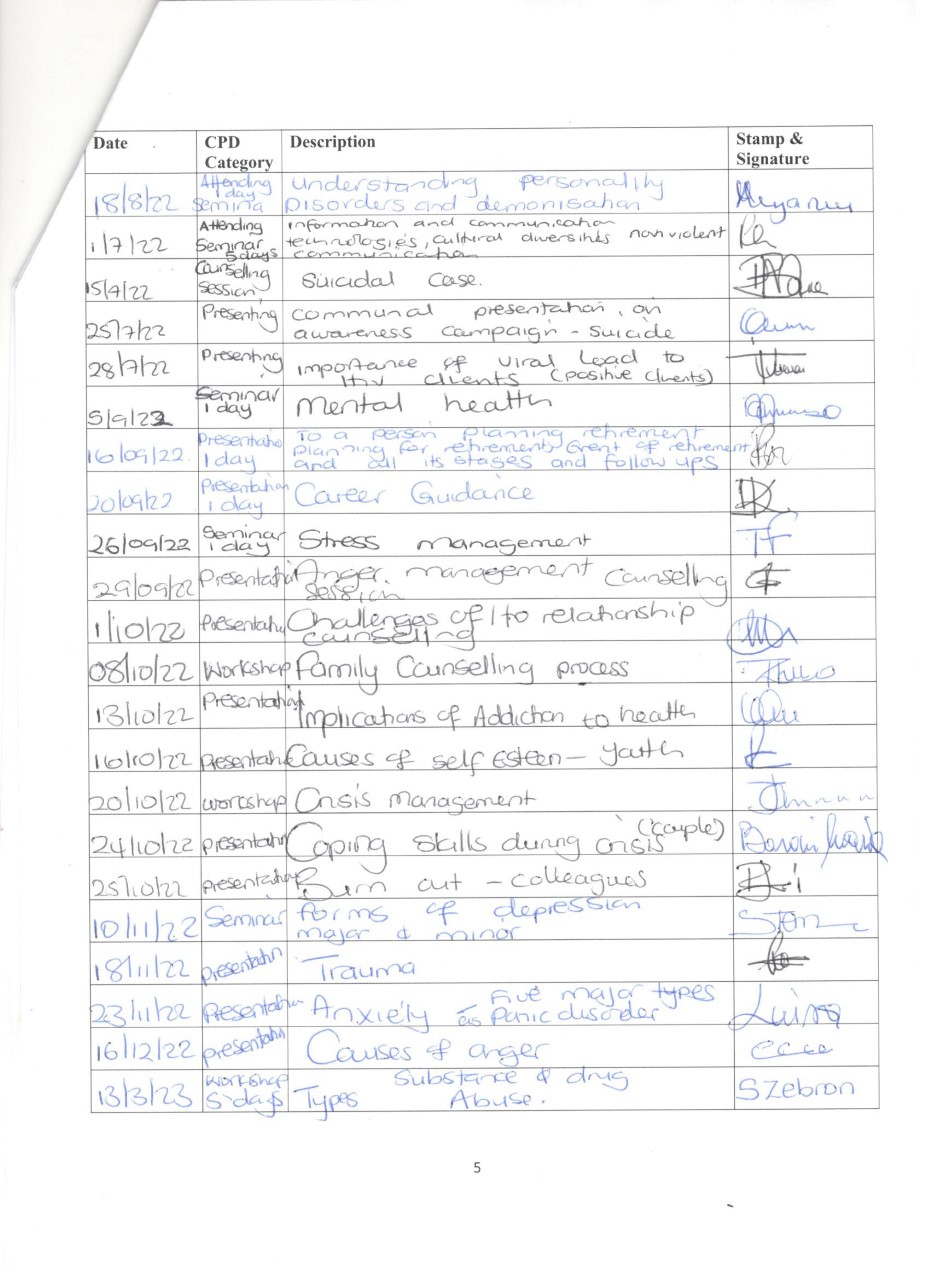 Date CPD Category Description Stamp & Signature
18/8/22 Attending 1 day Semina Understanding personality Disorders and demonisation
1/7/22 Attending Seminar 5 days information and communication technologies, cultural diversities nonviolent communication
15/7/22 Counselling Session Suicidal Case.
25/7/22 Presenting communal presentation on awareness campaign - suicide
28/7/22 Presenting importance of viral Lead to HIV clients (positive clients)
5/9/22 Seminar 1 day Mental health
16/09/22. Presentatio 1 day To a person planning retirement planning for retirement, Event of retirement and all its stages and follow ups
20/09/22 Presentation 1 day Career Guidance
26/09/22 Seminar 1 day Stress management
29/09/22 Presentation Anger management Counselling session
1/10/22 Presentatio Challenges of/to relationship counselling
08/10/22 Workshop Family Counselling process
13/10/22 Presentation Implications of Addiction to health
16/10/22 Presentatn Causes of self Esteen - youth
20/10/22 workshop Crisis Management
24/10/22 presentatn Coping skills during crisis (couple)
25/10/22 presentation Burn out - colleagues
10/11/22 Seminar forms of depression major & minor
18/11/22 presentatn Trauma
23/11/22 Presentation Anxiety Five major types as Panic disorder Luisa
16/12/22 presentatn Causes of anger
13/3/23 Workshop 5-days Types Substance & drug Abuse. SZebron
5